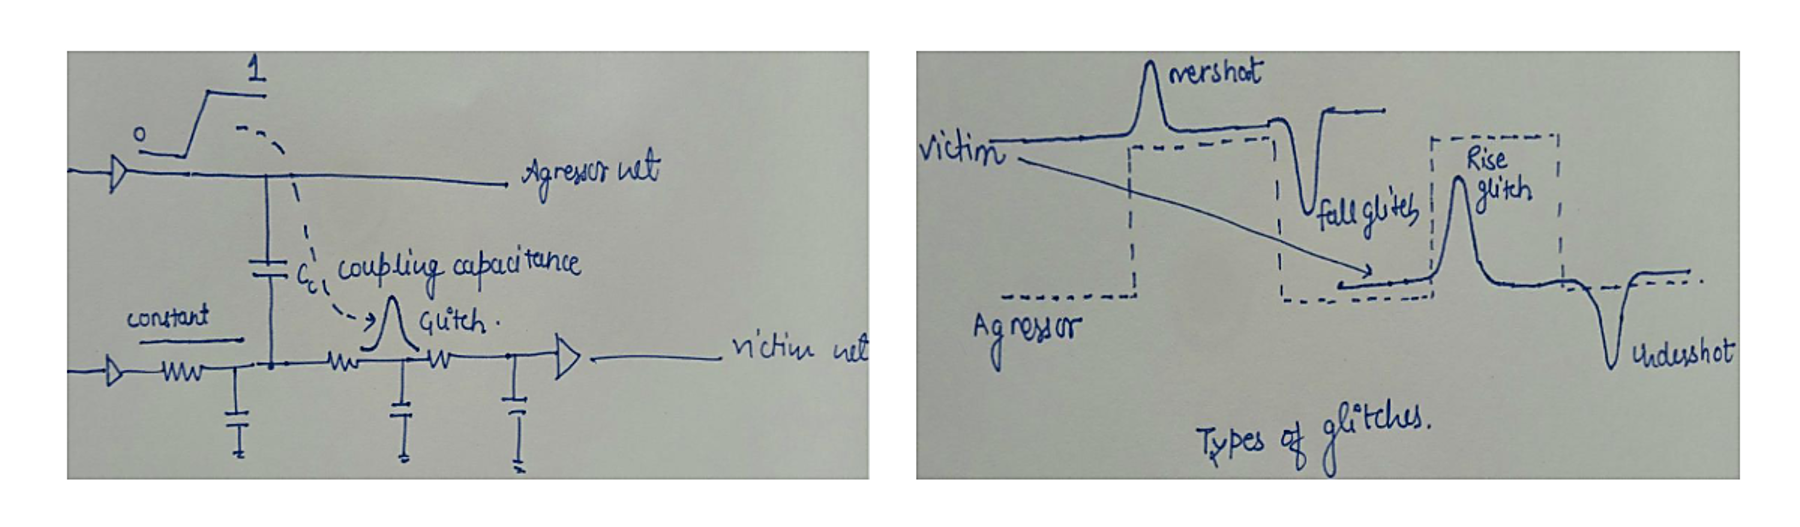 1
0
Agressor net
Cc coupling capacitance
constant
Glitch.
victim net
overshoot
victim
Rise
glitch
fall glitch
Agressor
undershot
Types of glitches.